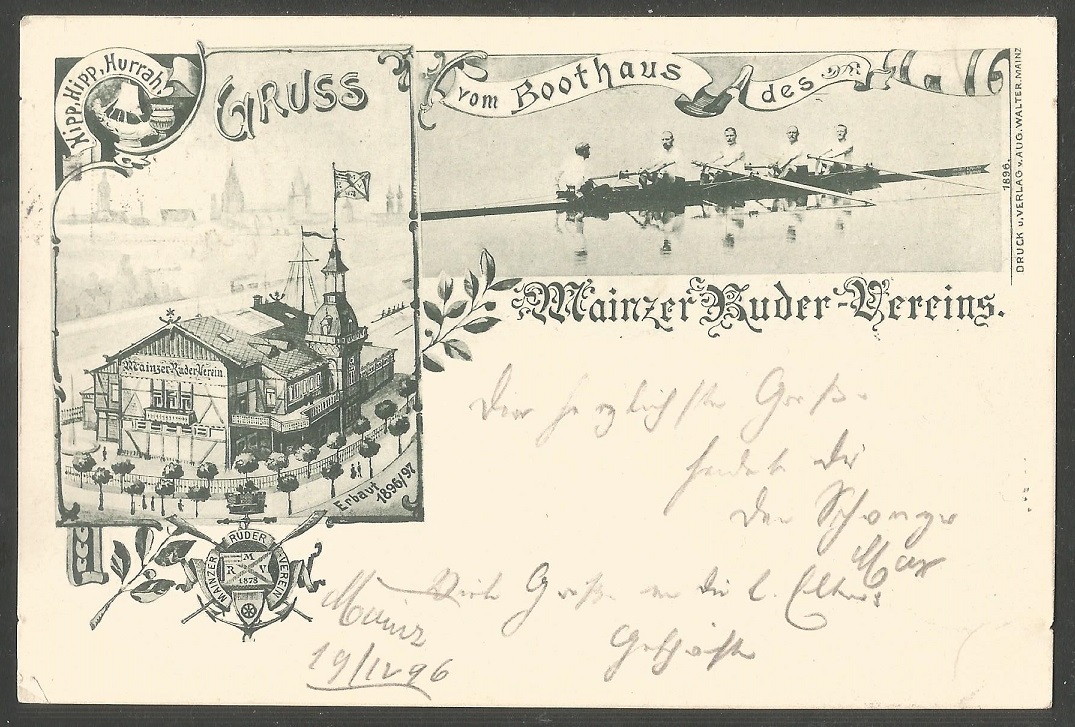 Hipp, Hipp, Hurrah!
GRUSS
vom Boothaus des
Mainzer Ruder-Vereins.
DRUCK u. VERLAG v. AUG. WALTER. MAINZ
1896.
Mainzer Ruder Verein.
Erbaut 1896/97
MAINZER RUDER VEREIN
M
R V
1878
Den herzlichsten Gruß
sendet dir
der
Max
Viele Grüße an die l. Eltern
Mainz
19/IV 96